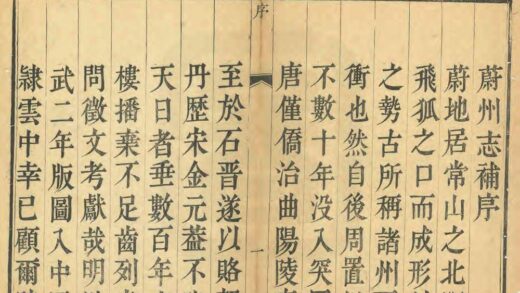 蔚州志補序
蔚地居常山之北
飛狐之口而成形
之勢古所稱諸州
衝也然自後周置
不數十年没入突
唐僅僑治曲陽陵
序
一
至於石晉遂以賂
丹歷宋金元葢不
天日者垂數百年
樓播棄不足齒列
問徵文考獻哉明
武二年版圖入中
隷雲中幸已顧爾